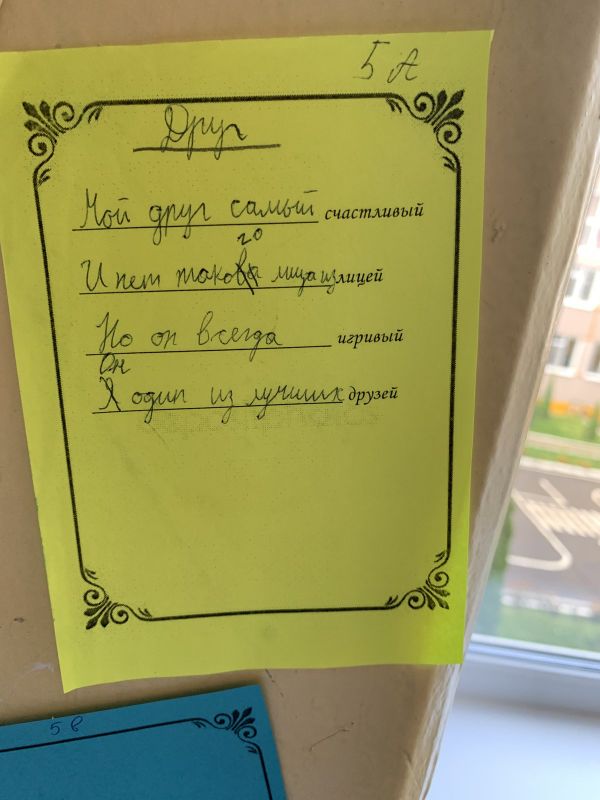 5 А
Друг
Мой друг самый счастливый
го
И нет такова лица из лицей
Но он всегда игривый
Он
Я один из лучших друзей
5 в